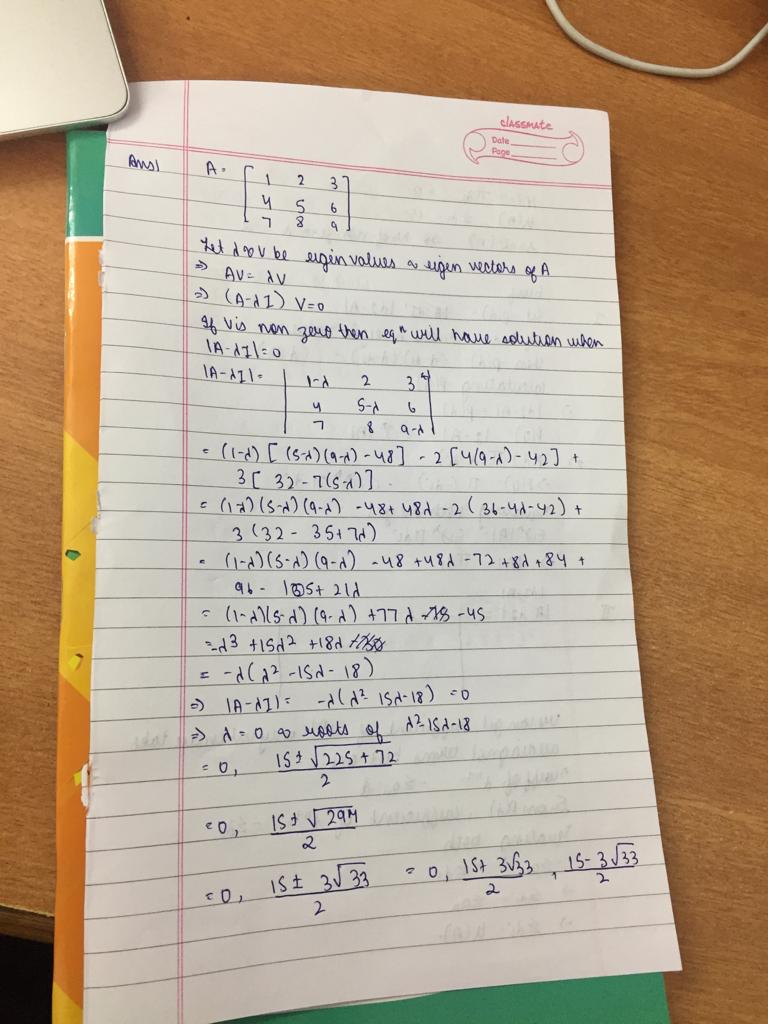 classmate
Date
Page
Ans1
A = [ 1 2 3
4 5 6
7 8 9 ]
Let λ & V be eigen values & eigen vectors of A
⇒ AV = λV
⇒ (A-λI) V=0
If V is non zero then eqⁿ will have solution when
|A-λI|=0
|A-λI| = | 1-λ 2 3
4 5-λ 6
7 8 9-λ |
= (1-λ) [ (5-λ)(9-λ) - 48] - 2 [4(9-λ) - 42] +
3[ 32 - 7(5-λ)]
= (1-λ)(5-λ)(9-λ) - 48 + 48λ - 2 ( 36-4λ-42) +
3 (32 - 35+7λ)
= (1-λ)(5-λ)(9-λ) - 48 + 48λ - 72 + 8λ + 84 +
96 - 105 + 21λ
= (1-λ)(5-λ)(9-λ) + 77λ - 45
= -λ³ + 15λ² + 18λ
= -λ(λ² - 15λ - 18)
⇒ |A-λI| = -λ(λ² 15λ-18) = 0
⇒ λ = 0 & roots of λ²-15λ-18
= 0, 15 ± √225 + 72 / 2
= 0, 15 ± √297 / 2
= 0, 15 ± 3√33 / 2 = 0, 15+ 3√33 / 2 , 15- 3√33 / 2